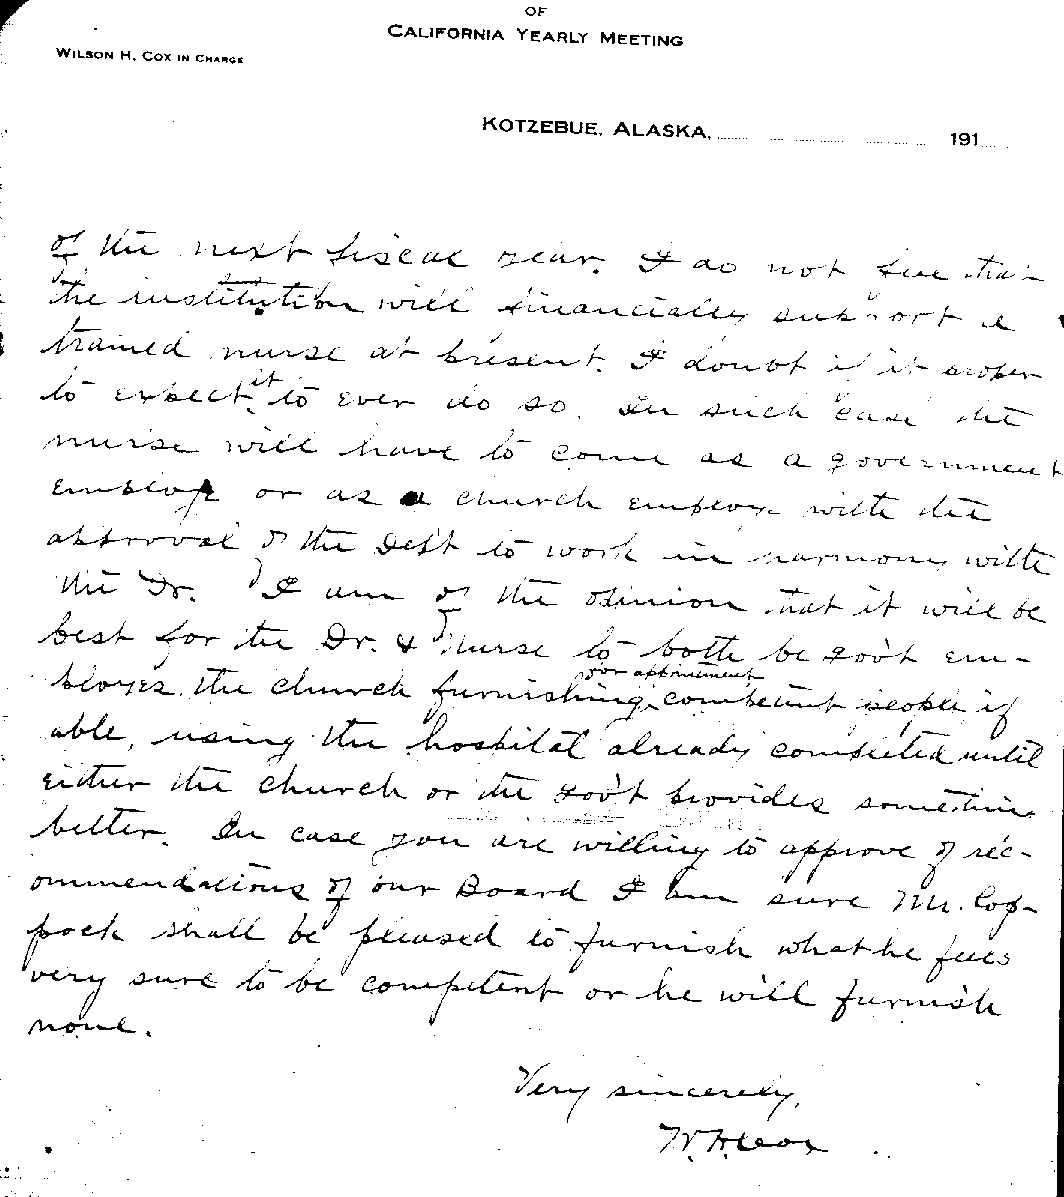 OF
CALIFORNIA YEARLY MEETING
WILSON H. COX IN CHARGE
KOTZEBUE, ALASKA, 191
of the next fiscal year. I do not see that
the institution will financially support a
trained nurse at present. I doubt if it proper
to expect it to ever do so. In such case the
nurse will have to come as a government
employe or as a church employe with the
approval of the Dept to work in harmony with
the Dr. I am of the opinion that it will be
best for the Dr. & nurse to both be gov't em-
ployes, the church furnishing for appointment competent people if
able, using the hospital already completed until
either the church or the gov't provides something
better. In case you are willing to approve of rec-
ommendations of our Board I am sure Mr. Cop-
pock shall be pleased to furnish what he feels
very sure to be competent or he will furnish
none.
Very sincerely,
W.H. Cox